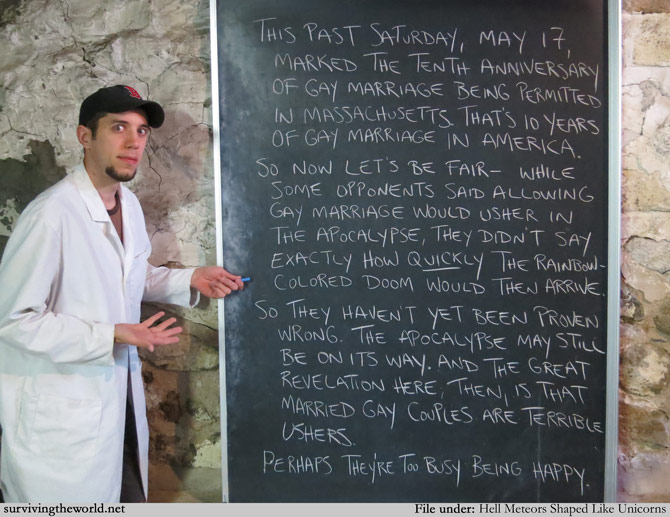 THIS PAST SATURDAY, MAY 17,
MARKED THE TENTH ANNIVERSARY
OF GAY MARRIAGE BEING PERMITTED
IN MASSACHUSETTS. THAT'S 10 YEARS
OF GAY MARRIAGE IN AMERICA.
SO NOW LET'S BE FAIR- WHILE
SOME OPPONENTS SAID ALLOWING
GAY MARRIAGE WOULD USHER IN
THE APOCALYPSE, THEY DIDN'T SAY
EXACTLY HOW QUICKLY THE RAINBOW-
COLORED DOOM WOULD THEN ARRIVE.
SO THEY HAVEN'T YET BEEN PROVEN
WRONG. THE APOCALYPSE MAY STILL
BE ON ITS WAY. AND THE GREAT
REVELATION HERE, THEN, IS THAT
MARRIED GAY COUPLES ARE TERRIBLE
USHERS.
PERHAPS THEY'RE TOO BUSY BEING HAPPY.
survivingtheworld.net
File under: Hell Meteors Shaped Like Unicorns